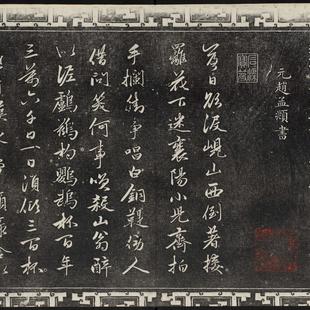 元趙孟頫書
落日欲没峴山西倒著接
籬花下迷襄陽小兒齊拍
手攔街爭唱白銅鞮傍人
借問笑何事笑殺山翁醉
似泥鸕鶿杓鸚鵡杯百年
三萬六千日一日須傾三百杯